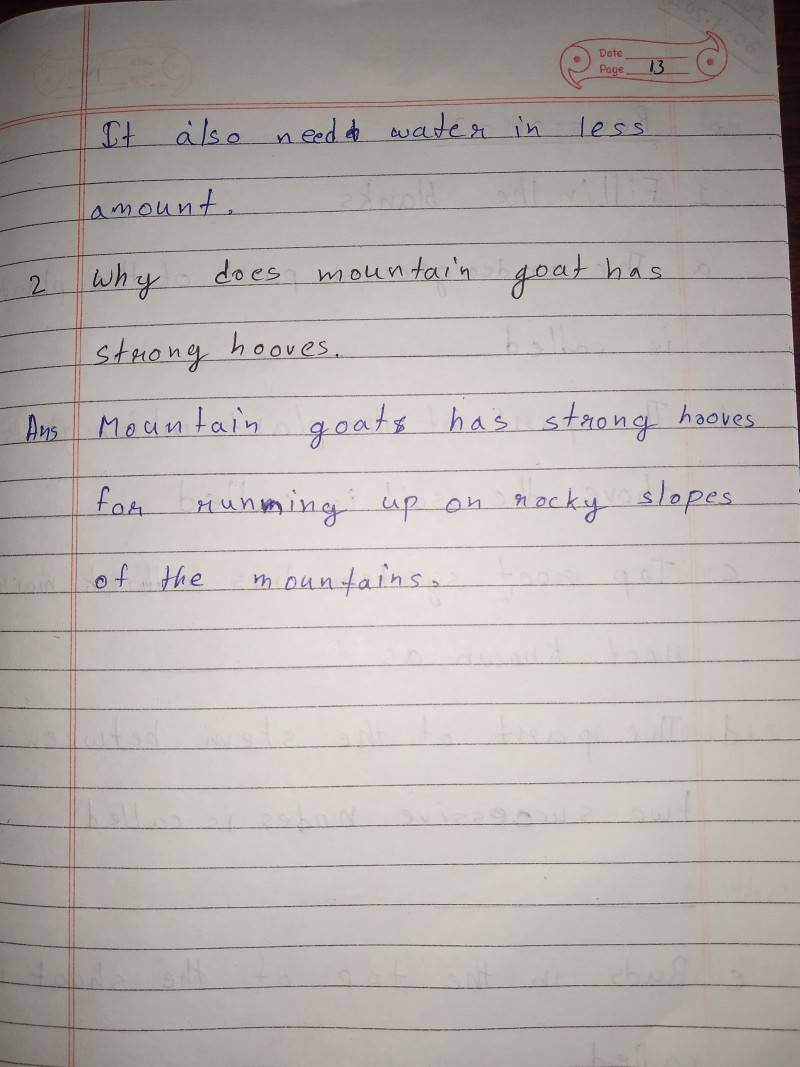 Date
Page 13
It also need water in less
amount.
2 Why does mountain goat has
strong hooves.
Ans Mountain goats has strong hooves
for running up on rocky slopes
of the mountains.